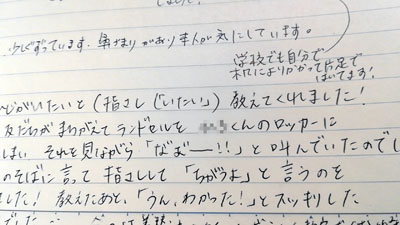 しました。
少しずっています。鼻づまりがあり本人が気にしています。
学校でも自分で
机によりかかって片足で
はいてます!
がいたいと(指さし「いたい」)教えてくれました!
友だちがまちがえてランドセルを くんのロッカーに
しまい それを見ながら「なぁー!!」と叫んでいたのでし
のそばに言って 指さしして「ちがうよ」と言うのを
した! 教えたあと、「うん、わかった!」とスッキリした